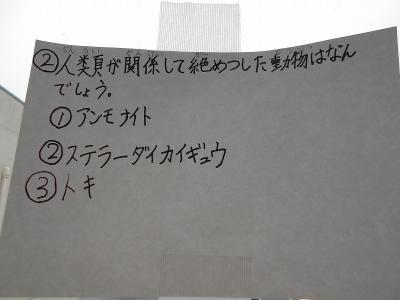 ②人類が関係して絶めつした動物はなん
でしょう。
①アンモナイト
②ステラーダイカイギュウ
③トキ